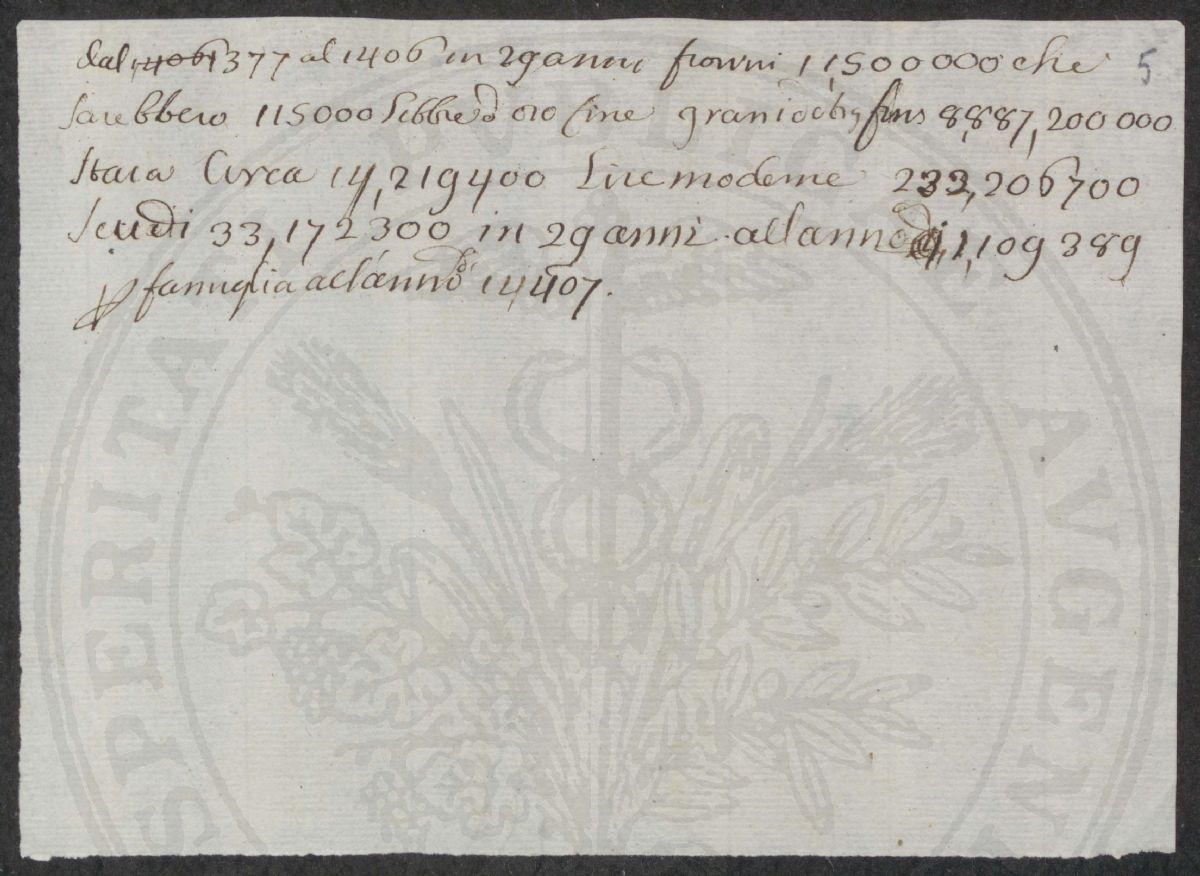 dal 1406 1377 al 1406 in 29 anni fiorini 11,500000 che 5
sarebbero 115000 Libbre d'oro fine grani 8,887,200000
Staia Circa 14,219400 Lire moderne 233,206700
Scudi 33,172300 in 29 anni all'anno 1,109389
famiglia all'anno 14407.
PUBLICAE
SPERITA
AVGEN